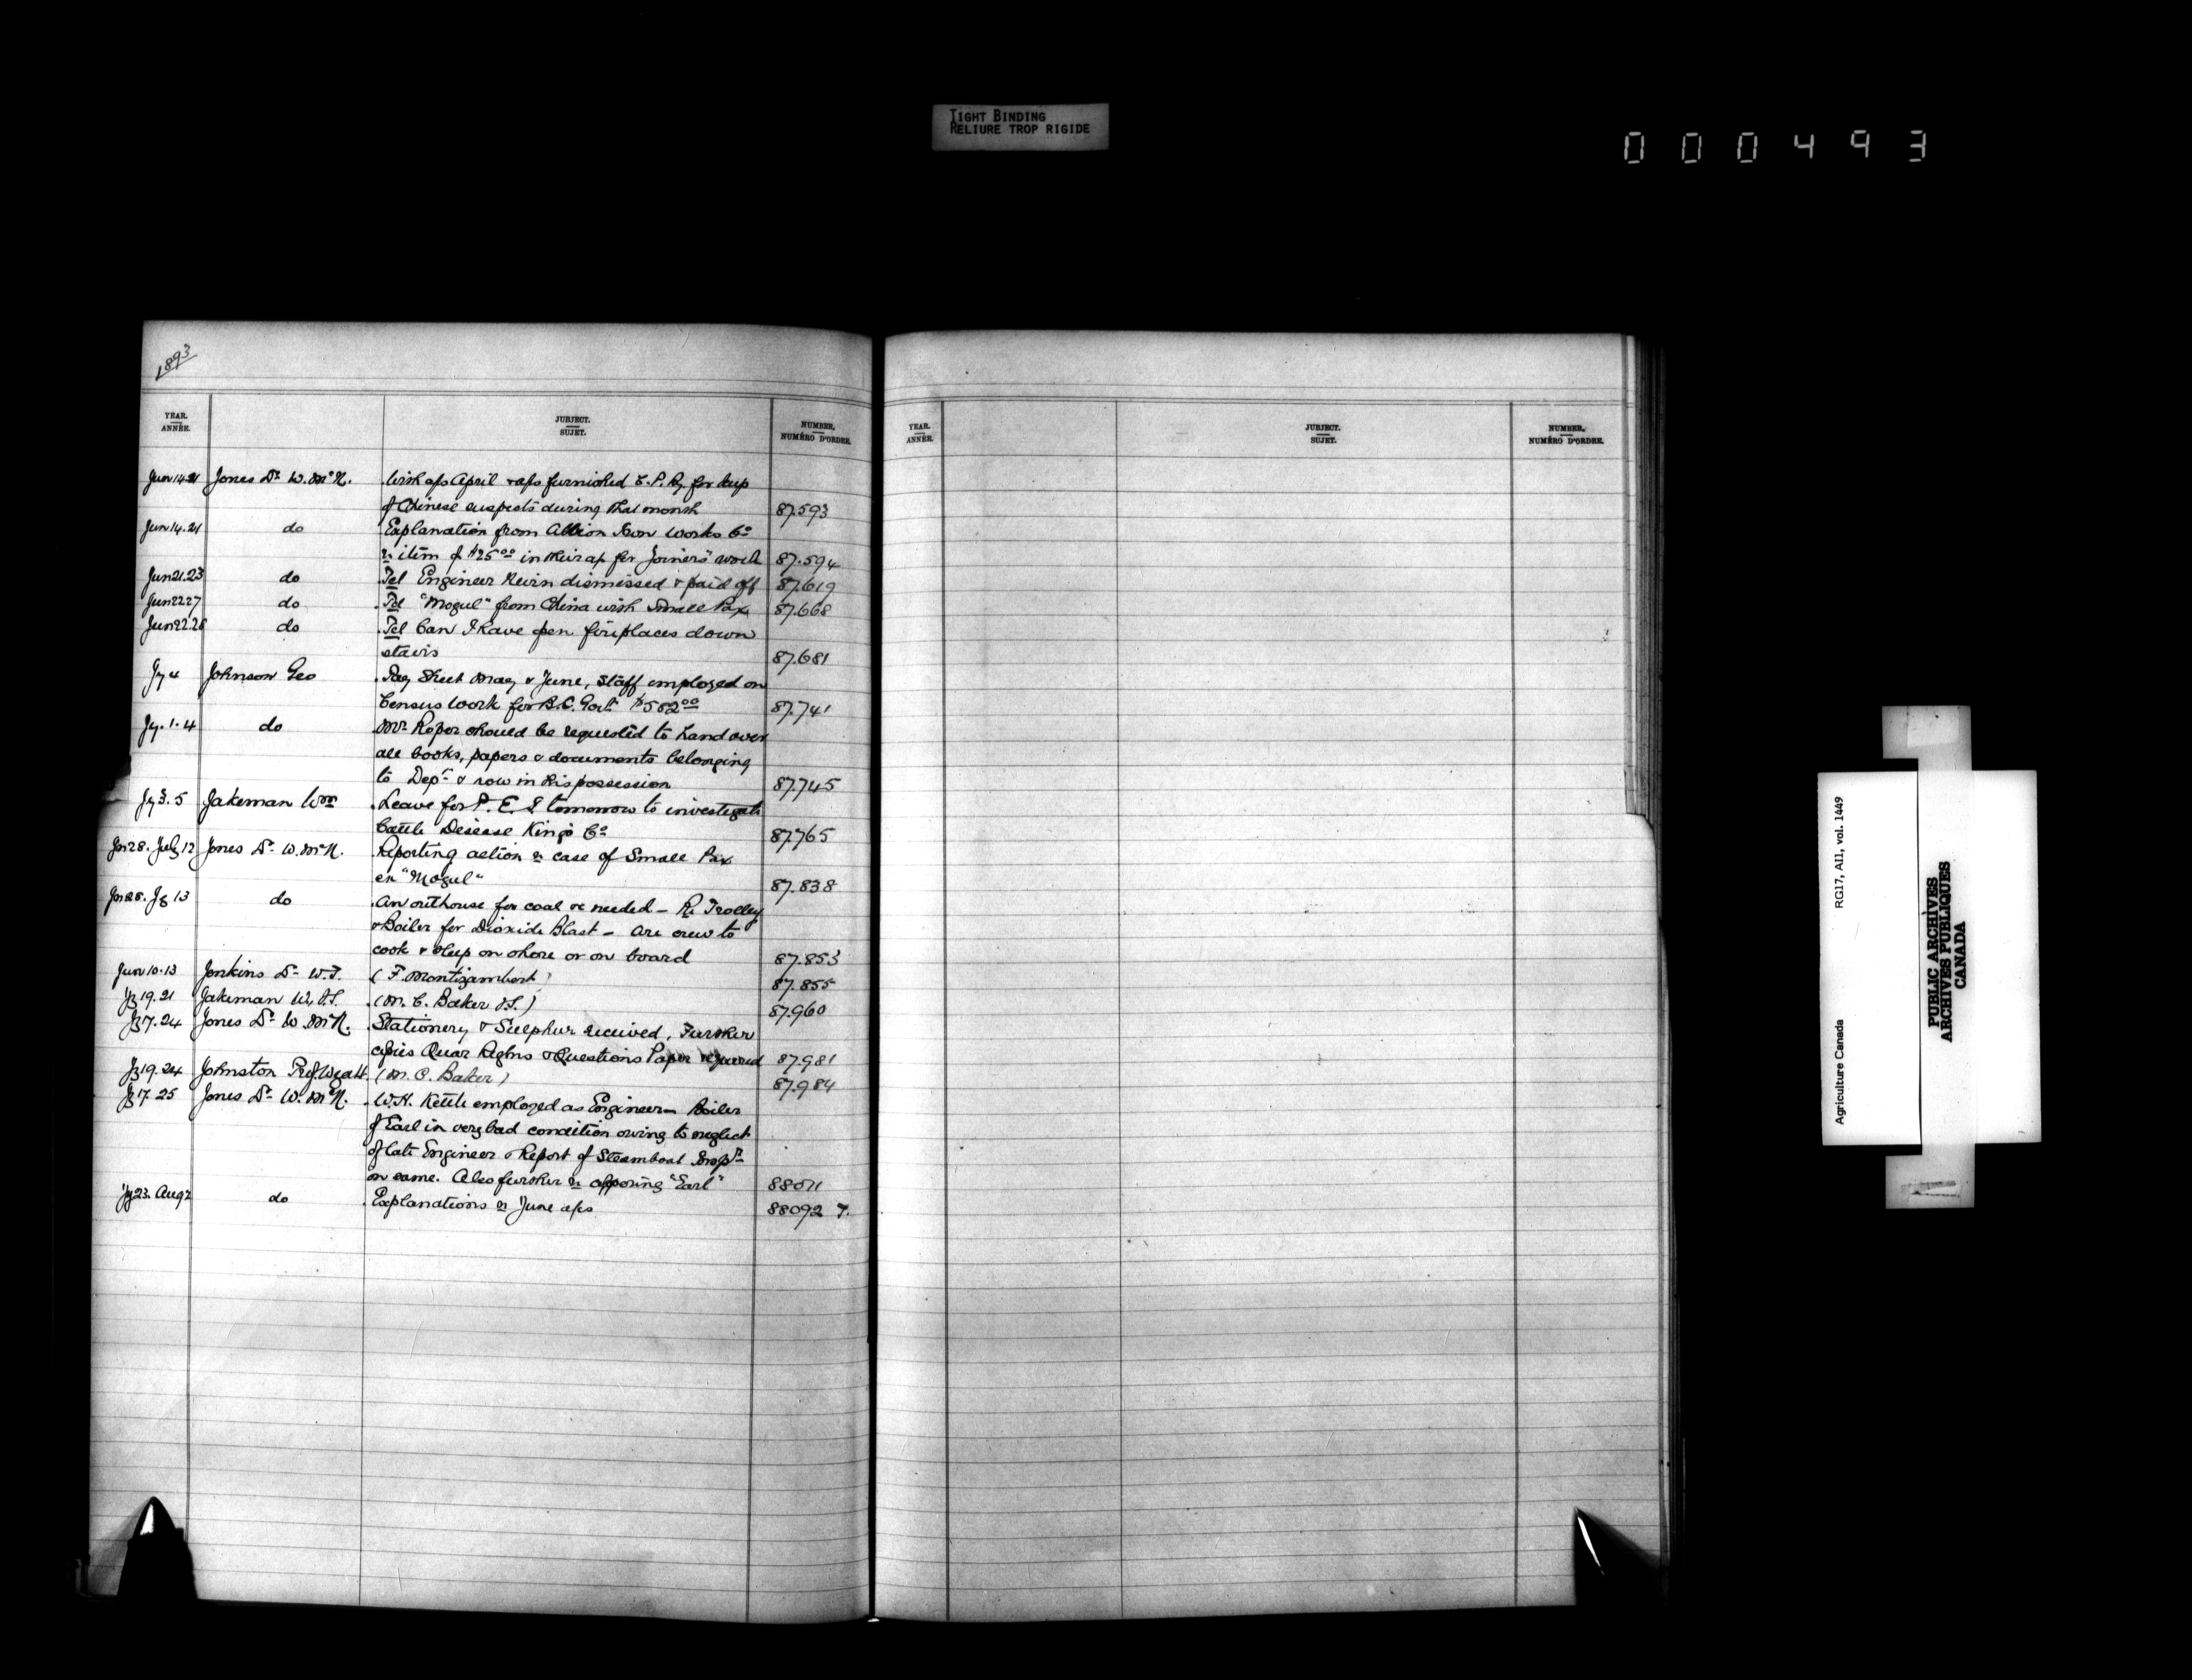 TIGHT BINDING
RELIURE TROP RIGIDE
000493
1893
YEAR. ANNÉE. JUBJECT. SUJET. NUMBER. NUMÉRO D'ORDRE.
Jun 14.21 Jones Dr W. McN. With a/cs April & a/cs furnished C.P.Ry for keep
of Chinese suspects during that month 87.593
Jun 14.21 do Explanation from Albion Iron Works Co
re item of $25.00 in their a/c for "Joiners" work 87.594
Jun 21.23 do Tel Engineer Kevin dismissed & paid off 87.619
Jun 22 27 do Tel "Mogul" from China with Small Pox 87.668
Jun 22.28 do Tel Can I have open fireplaces down
stairs 87.681
Jy 4 Johnson Geo Pay Sheet May & June, Staff employed on
Census Work for B.C. Govt $582.00 87.741
Jy. 1.4 do Mr Roper should be requested to hand over
all books, papers & documents belonging
to Dept & now in his possession 87.745
Jy 3.5 Jakeman Wm Leave for P.E.I tomorrow to investigate
Cattle Disease Kings Co 87.765
Jn 28. July 12 Jones Dr W. McN. Reporting action re case of Small Pox
on "Mogul" 87.838
Jn 28. Jy 13 do An outhouse for coal &c needed - Re Trolley
& Boiler for Dioxide Blast - Are crew to
cook & sleep on shore or on board 87.853
Jun 10.13 Jenkins Dr W.T. (F. Montizambert) 87.855
Jy 19.21 Jakeman W. V.S. (M. C. Baker V.S.) 87.960
Jy 17.24 Jones Dr W. McN. Stationery & Sulphur received, Further
copies Quar Regtns & Questions Paper required 87.981
Jy 19.24 Johnston Prof. Wyatt (M. C. Baker) 87.984
Jy 17.25 Jones Dr W. McN. W.H. Kettle employed as Engineer - Boiler
of Earl in very bad condition owing to neglect
of late Engineer & Report of Steamboat Inspr
on same. Also further re "Earl" 88011
Jy 23. Aug 2 do Explanations re June a/cs 88092
YEAR. ANNÉE. JUBJECT. SUJET. NUMBER. NUMÉRO D'ORDRE.
Agriculture Canada RG17, AI1, vol. 1449
PUBLIC ARCHIVES
ARCHIVES PUBLIQUES
CANADA